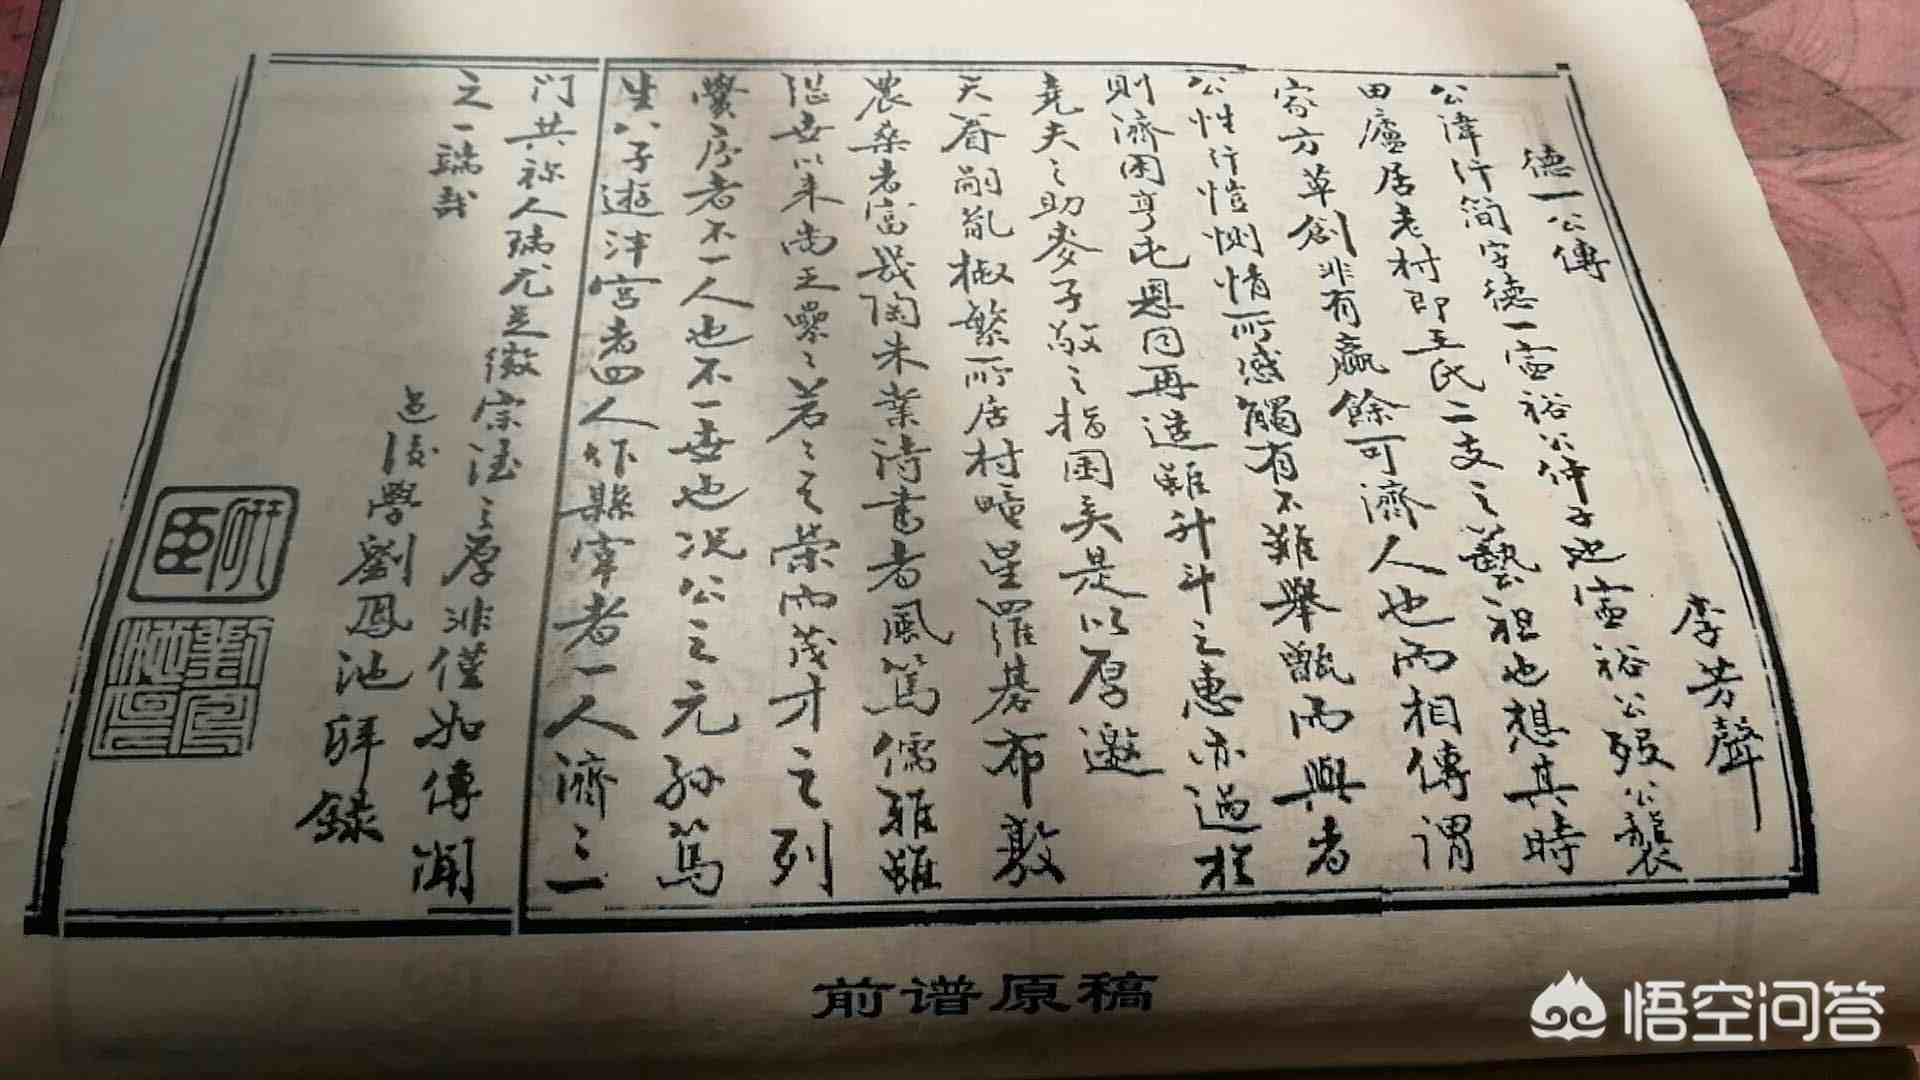 德一公傳
李芳聲
公諱行簡字德一富裕公仲子也富裕公歿公襲
田廬居老村即王氏二支之藝祖也想其時
家方草創非有贏餘可濟人也而相傳謂
公性行愷惻情所感觸有不難舉甑而與者
則濟困亨屯恩同再造雖升斗之惠亦過於
堯夫之助麥子敬之指囷矣是以厚邀
天眷嗣胤椒繁所居村疃星羅碁布敦
農桑者富幾陶朱業詩書者風篤儒雅雖
從世以來尚王纍纍若若之榮而茂才之列
黌序者不一人也不一世也況公之元孫篤
生八子遊泮宮者四人作縣宰者一人濟濟一
門共祢人瑞尤足徵宗法之厚非僅如傳聞
之一端哉
邑後學劉鳳池拜錄
研臣
前谱原稿
悟空问答